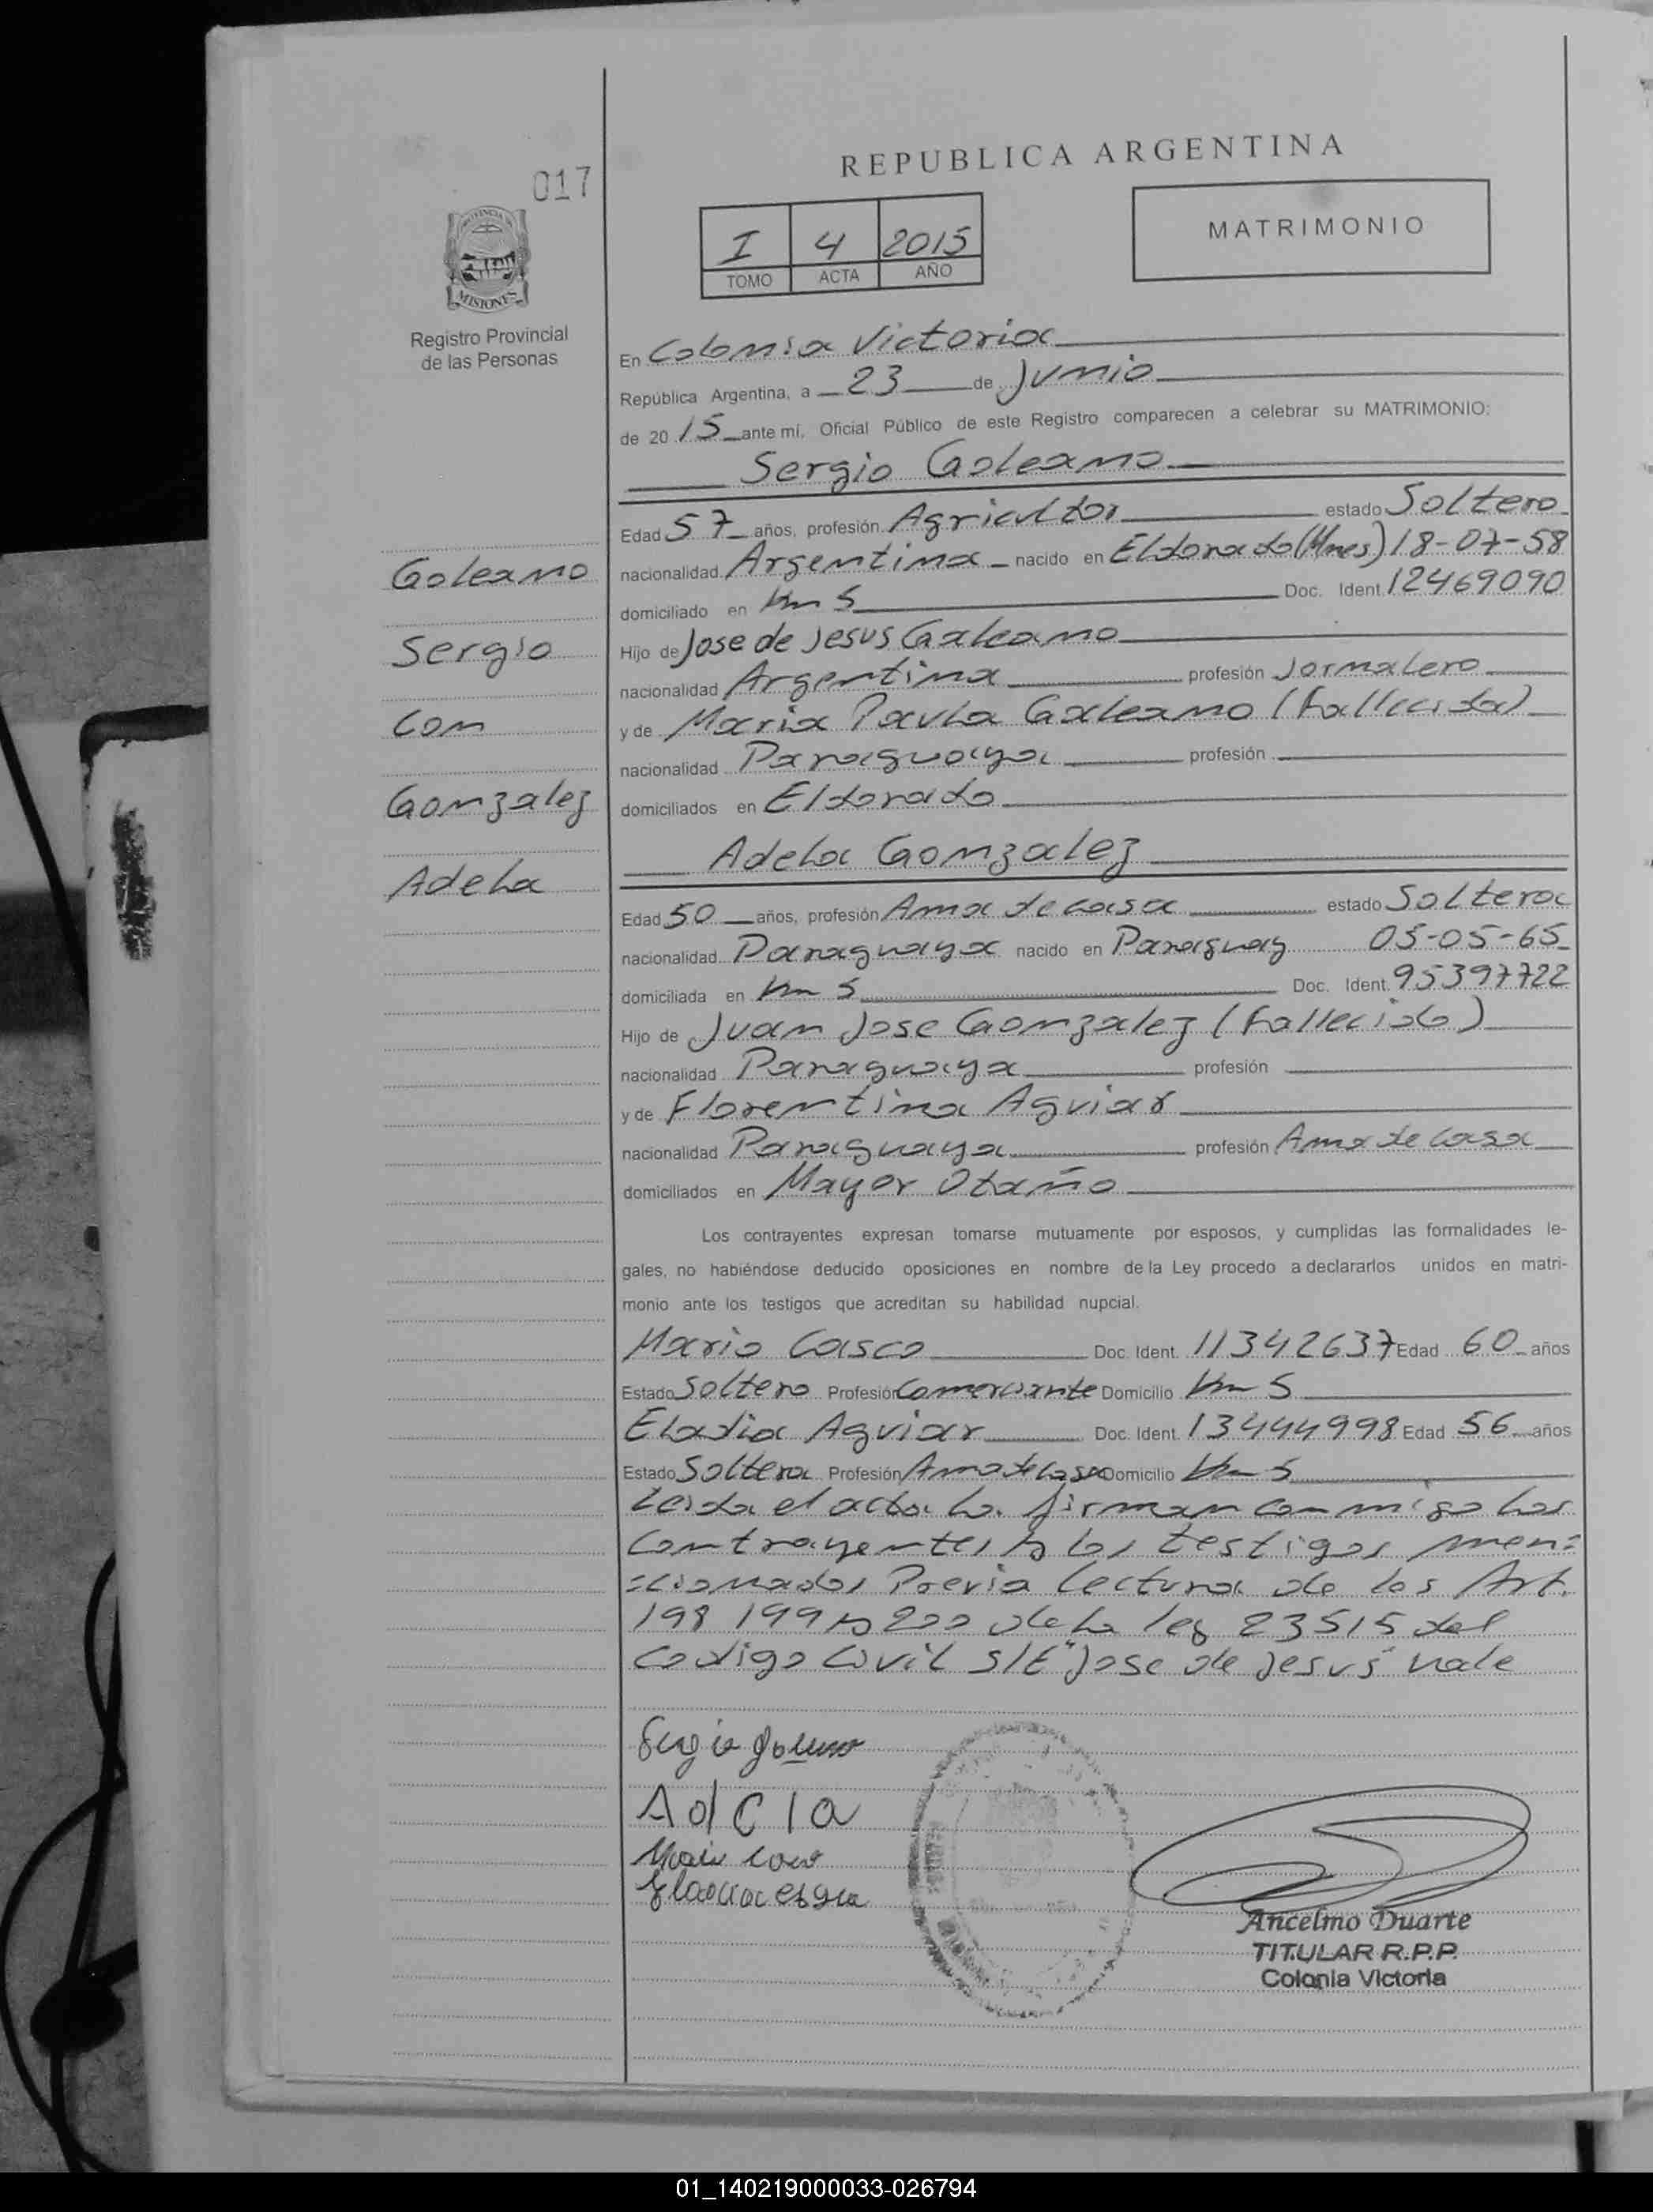 REPUBLICA ARGENTINA
017
MATRIMONIO
I 4 2015
TOMO ACTA AÑO
PROVINCIA DE
MISIONES
Registro Provincial
de las Personas
En Colonia Victoria
República Argentina, a 23 de Junio
de 20 15 ante mí, Oficial Público de este Registro comparecen a celebrar su MATRIMONIO:
Sergio Galeano
Edad 57 años, profesión Agricultor estado Soltero
Galeano
nacionalidad Argentina nacido en Eldorado (Mnes) 18-07-58
domiciliado en Km 5 Doc. Ident. 12469090
Sergio
Hijo de Jose de Jesus Galeano
nacionalidad Argentina profesión Jornalero
Con
y de Maria Paula Galeano (Fallecida)
nacionalidad Paraguaya profesión
Gonzalez
domiciliados en Eldorado
Adela Gonzalez
Adela
Edad 50 años, profesión Ama de casa estado Soltera
nacionalidad Paraguaya nacido en Paraguay 05-05-65
domiciliada en Km 5 Doc. Ident. 95397722
Hijo de Juan Jose Gonzalez (Fallecido)
nacionalidad Paraguaya profesión
y de Florentina Aguiar
nacionalidad Paraguaya profesión Ama de casa
domiciliados en Mayor Otaño
Los contrayentes expresan tomarse mutuamente por esposos, y cumplidas las formalidades le-
gales, no habiéndose deducido oposiciones en nombre de la Ley procedo a declararlos unidos en matri-
monio ante los testigos que acreditan su habilidad nupcial.
Mario Casco Doc. Ident. 11342637 Edad 60 años
Estado Soltero Profesión Comerciante Domicilio Km 5
Eladia Aguiar Doc. Ident. 13444998 Edad 56 años
Estado Soltera Profesión Ama de casa Domicilio Km 5
Leida el acta la firman conmigo los
contrayentes y los testigos men=
=cionados Previa lectura de los Art.
198 199 y 200 de la ley 23515 del
Codigo Civil S/E "Jose de Jesus" vale
Sergio
Adela
Ancelmo Duarte
TITULAR R.P.P.
Colonia Victoria
01_140219000033-026794